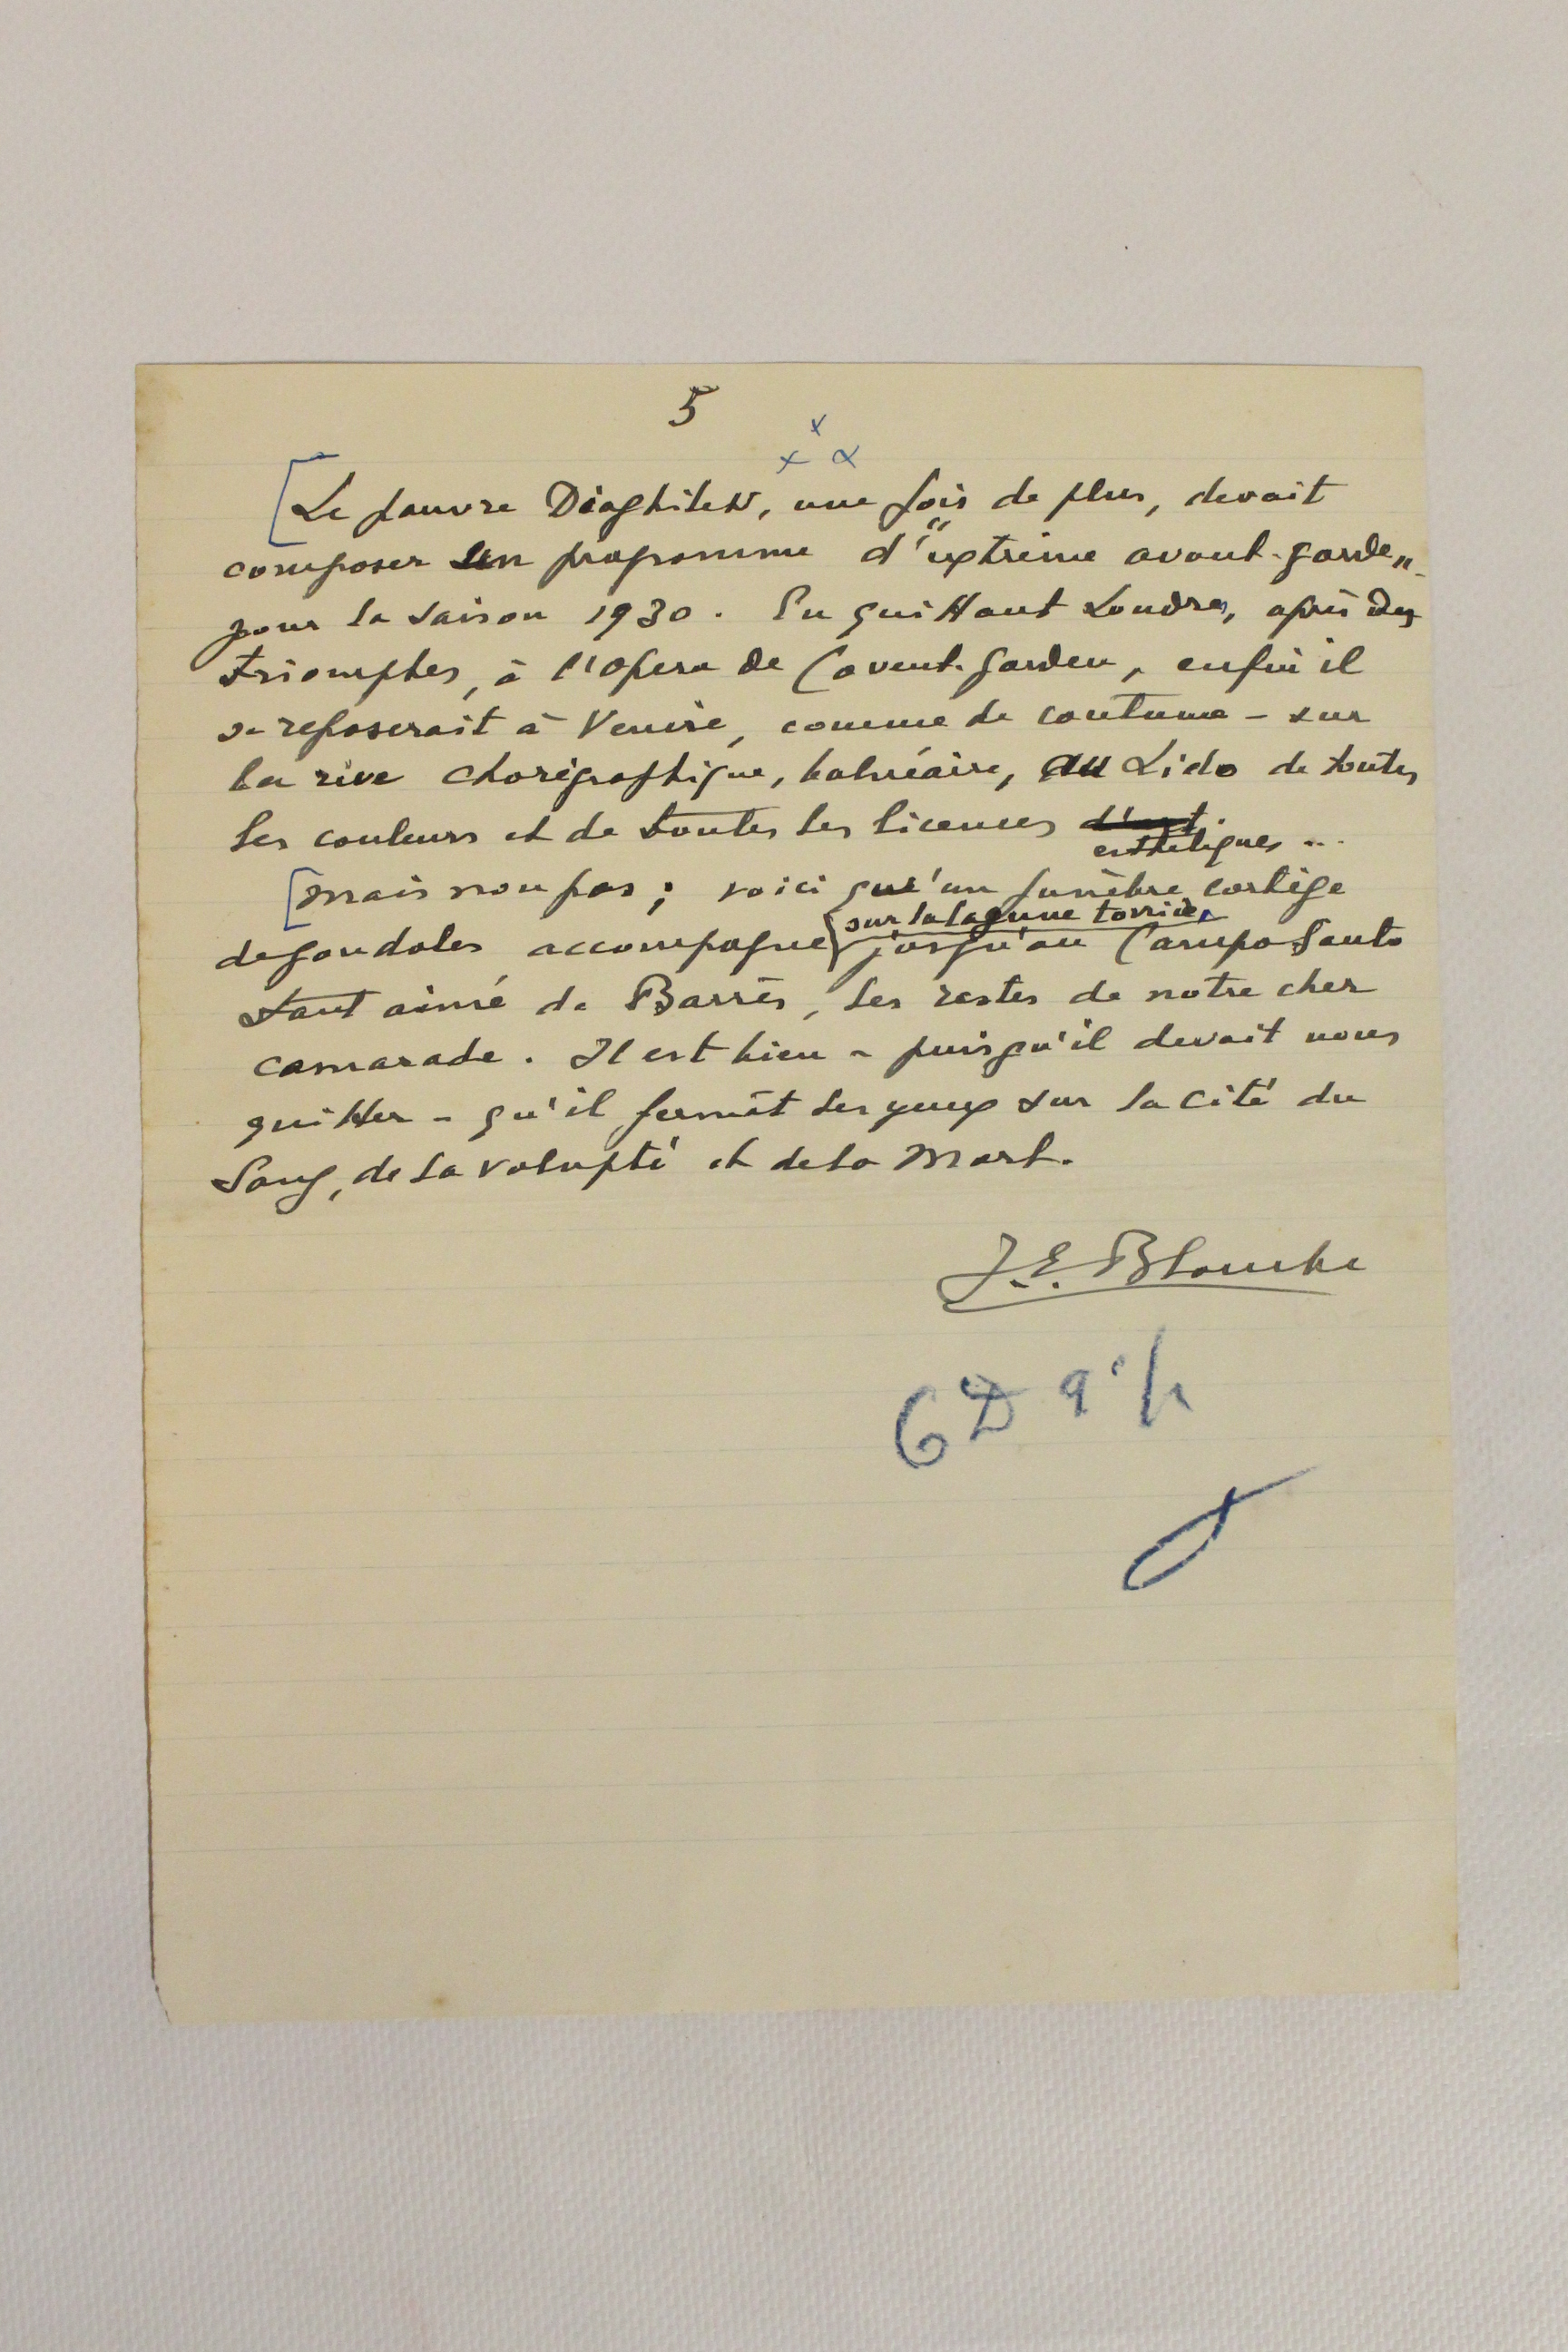 5
x
x x
[Le pauvre Diaghilew, une fois de plus, devait
composer un programme d'"extrême avant-garde"
pour la saison 1930. En quittant Londres, après des
triomphes, à l'opera de Covent-Garden, enfin il
se reposerait à Venise, comme de coutume - sur
la rive chorégraphique, balnéaire, au Lido de toutes
les couleurs et de toutes les licences d'art.
esthétiques ...
[Mais non pas ; voici qu'un funèbre cortège
sur la lagune torride,
de gondoles accompagne jusqu'au Campo Santo
tant aimé de Barrès, les restes de notre cher
camarade. Il est bien - puisqu'il devait nous
quitter - qu'il fermât les yeux sur la cité du
Sang, de la volupté et de la Mort.
J.E. Blanche